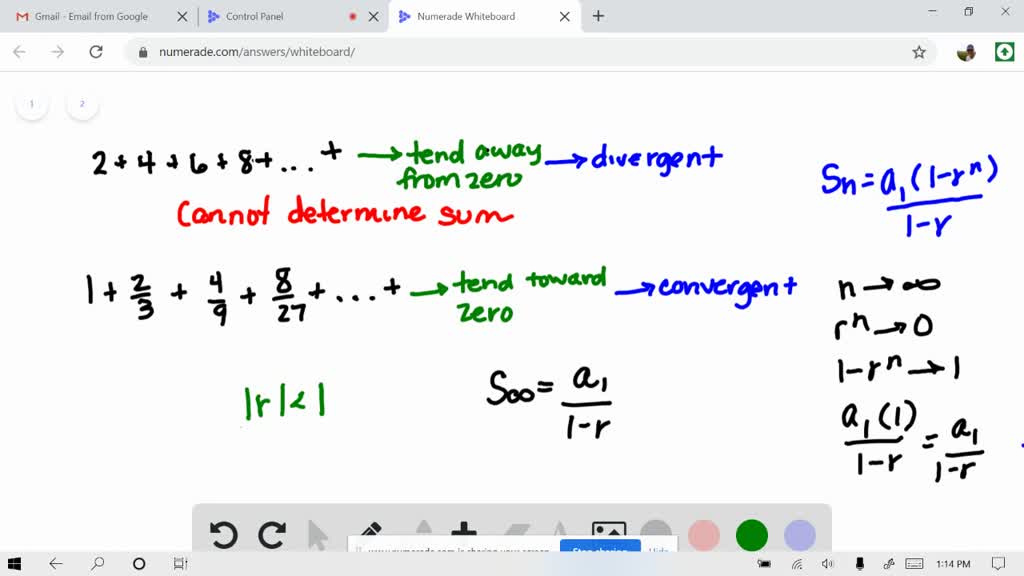 Gmail - Email from Google
Control Panel
Numerade Whiteboard
numerade.com/answers/whiteboard/
1 2
2 + 4 + 6 + 8 + ... + → tend away from zero → divergent
Cannot determine sum
Sn = a₁(1-rⁿ) / 1-r
1 + 2/3 + 4/9 + 8/27 + ... + → tend toward zero → convergent
n → ∞
rⁿ → 0
1-rⁿ → 1
|r| < 1
S∞ = a₁ / 1-r
a₁(1) / 1-r = a₁ / 1-r
www.numerade.com is sharing your screen. Stop sharing Hide
1:14 PM